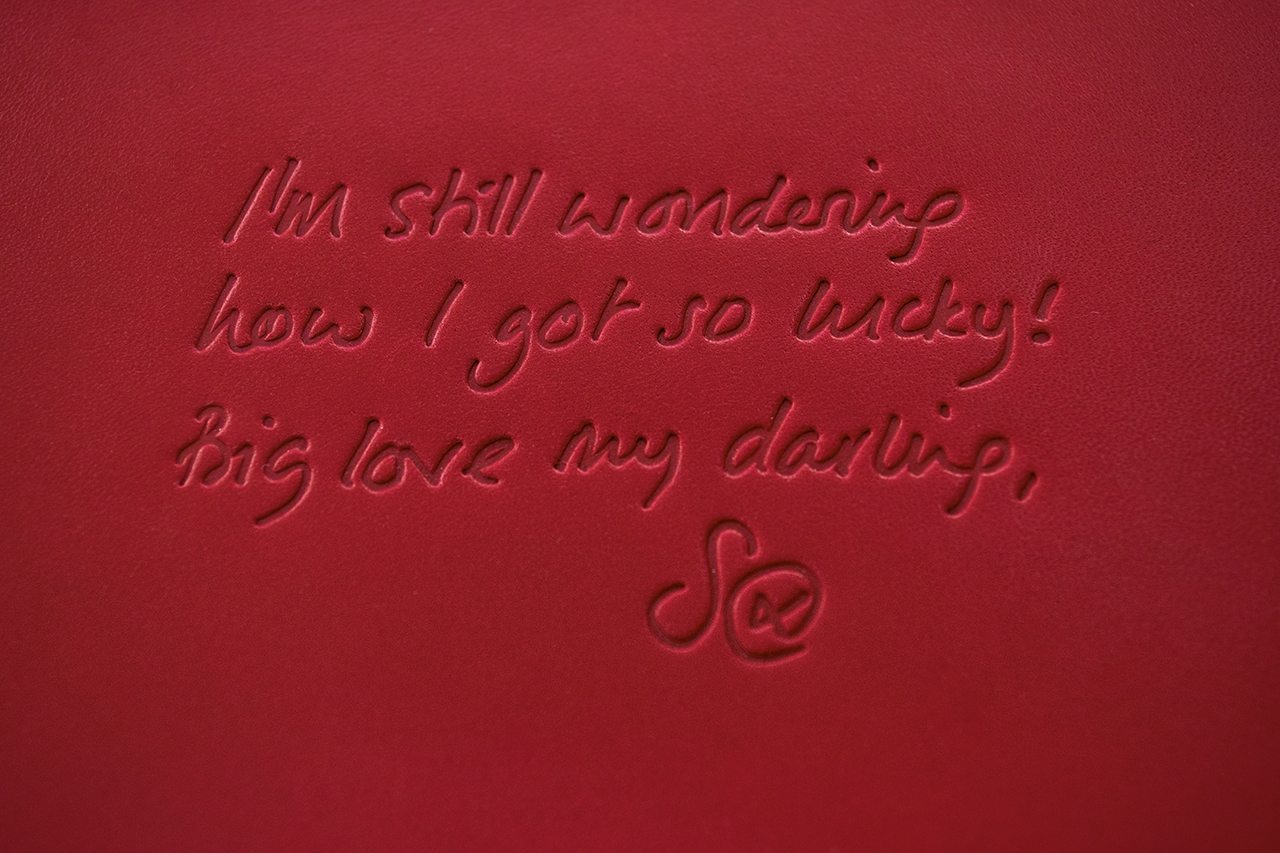 I'm still wondering
how I got so lucky!
Big love my darling,
S